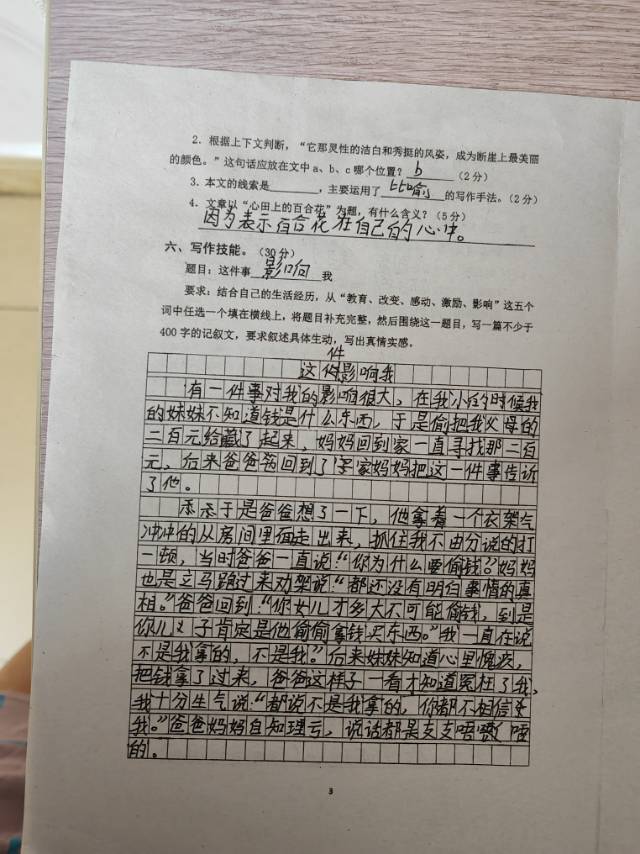 2. 根据上下文判断，“它那灵性的洁白和秀挺的风姿，成为断崖上最美丽
的颜色。”这句话应放在文中 a、b、c 哪个位置？ b （2 分）
3. 本文的线索是________，主要运用了 比喻 的写作手法。（2 分）
4. 文章以“心田上的百合花”为题，有什么含义？（5 分）
因为表示百合花在自己的心中。
六、写作技能。（30 分）
题目：这件事 影响 我
要求：结合自己的生活经历，从“教育、改变、感动、激励、影响”这五个
词中任选一个填在横线上，将题目补充完整，然后围绕这一题目，写一篇不少于
400 字的记叙文，要求叙述具体生动，写出真情实感。
件
这件影响我
有一件事对我的影响很大，在我小的时候我
的妹妹不知道钱是什么东西，于是偷把我父母的
二百元给藏了起来，妈妈回到家一直寻找那二百
元，后来爸爸回到了家妈妈把这一件事告诉
了他。
于是爸爸想了一下，他拿着一个衣架气
冲冲的从房间里面走出来，抓住我不由分说的打
一顿，当时爸爸一直说：“你为什么要偷钱？”妈妈
也是立马跑过来劝架说：“都还没有明白事情的真
相。”爸爸回到：“你女儿才多大不可能偷钱，到是
你儿子肯定是他偷偷拿钱买东西。”我一直在说
不是我拿的，不是我。”后来妹妹知道心里愧疚，
把钱拿了过来，爸爸这样子一看才知道冤枉了我，
我十分生气说：“都说不是我拿的，你都不相信
我。”爸爸妈妈自知理亏，说话都是支支唔唔
的。
3